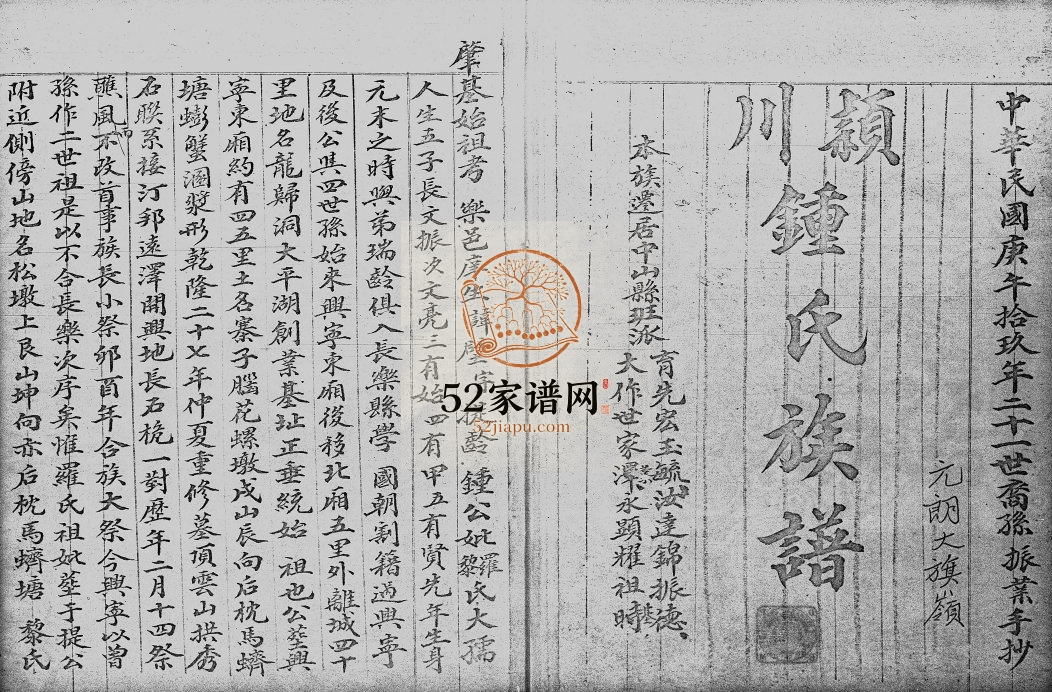 中華民國庚午拾玖年二十一世裔孫振業手抄
元朗大旗嶺
潁川鍾氏族譜
本族遷居中山縣班派
育先宏玉毓汝達錦振德、
大作世家澤永顯耀祖時
肇基始祖考 樂邑庠生諱 鍾公妣羅黎氏大孺
人生五子長文振次文亮三有始四有甲五有賢先年生身
元末之時與弟瑞齡俱入長樂縣學 國朝割籍過興寧
及後公與四世孫始來興寧東廂後移北廂五里外離城四十
里地名龍歸洞大平湖創業基址正垂統始 祖也公塟興
寧東廂約有四五里土名寨子腦花螺墩戌山辰向后枕馬蠐
塘蟛蟹湺漿形乾隆二十七年仲夏重修墓頂雲山拱秀
石聯系接汀邦遠澤開興地長石桅一對歷年二月十四祭
醮風雨不改首事族長小祭卯酉年合族大祭今興寧以曾
孫作二世祖是以不合長樂次序矣惟羅氏祖妣塟于提公
附近側傍山地名松墩上艮山坤向亦后枕馬蠐塘 黎氏
52家谱网
52jiapu.com